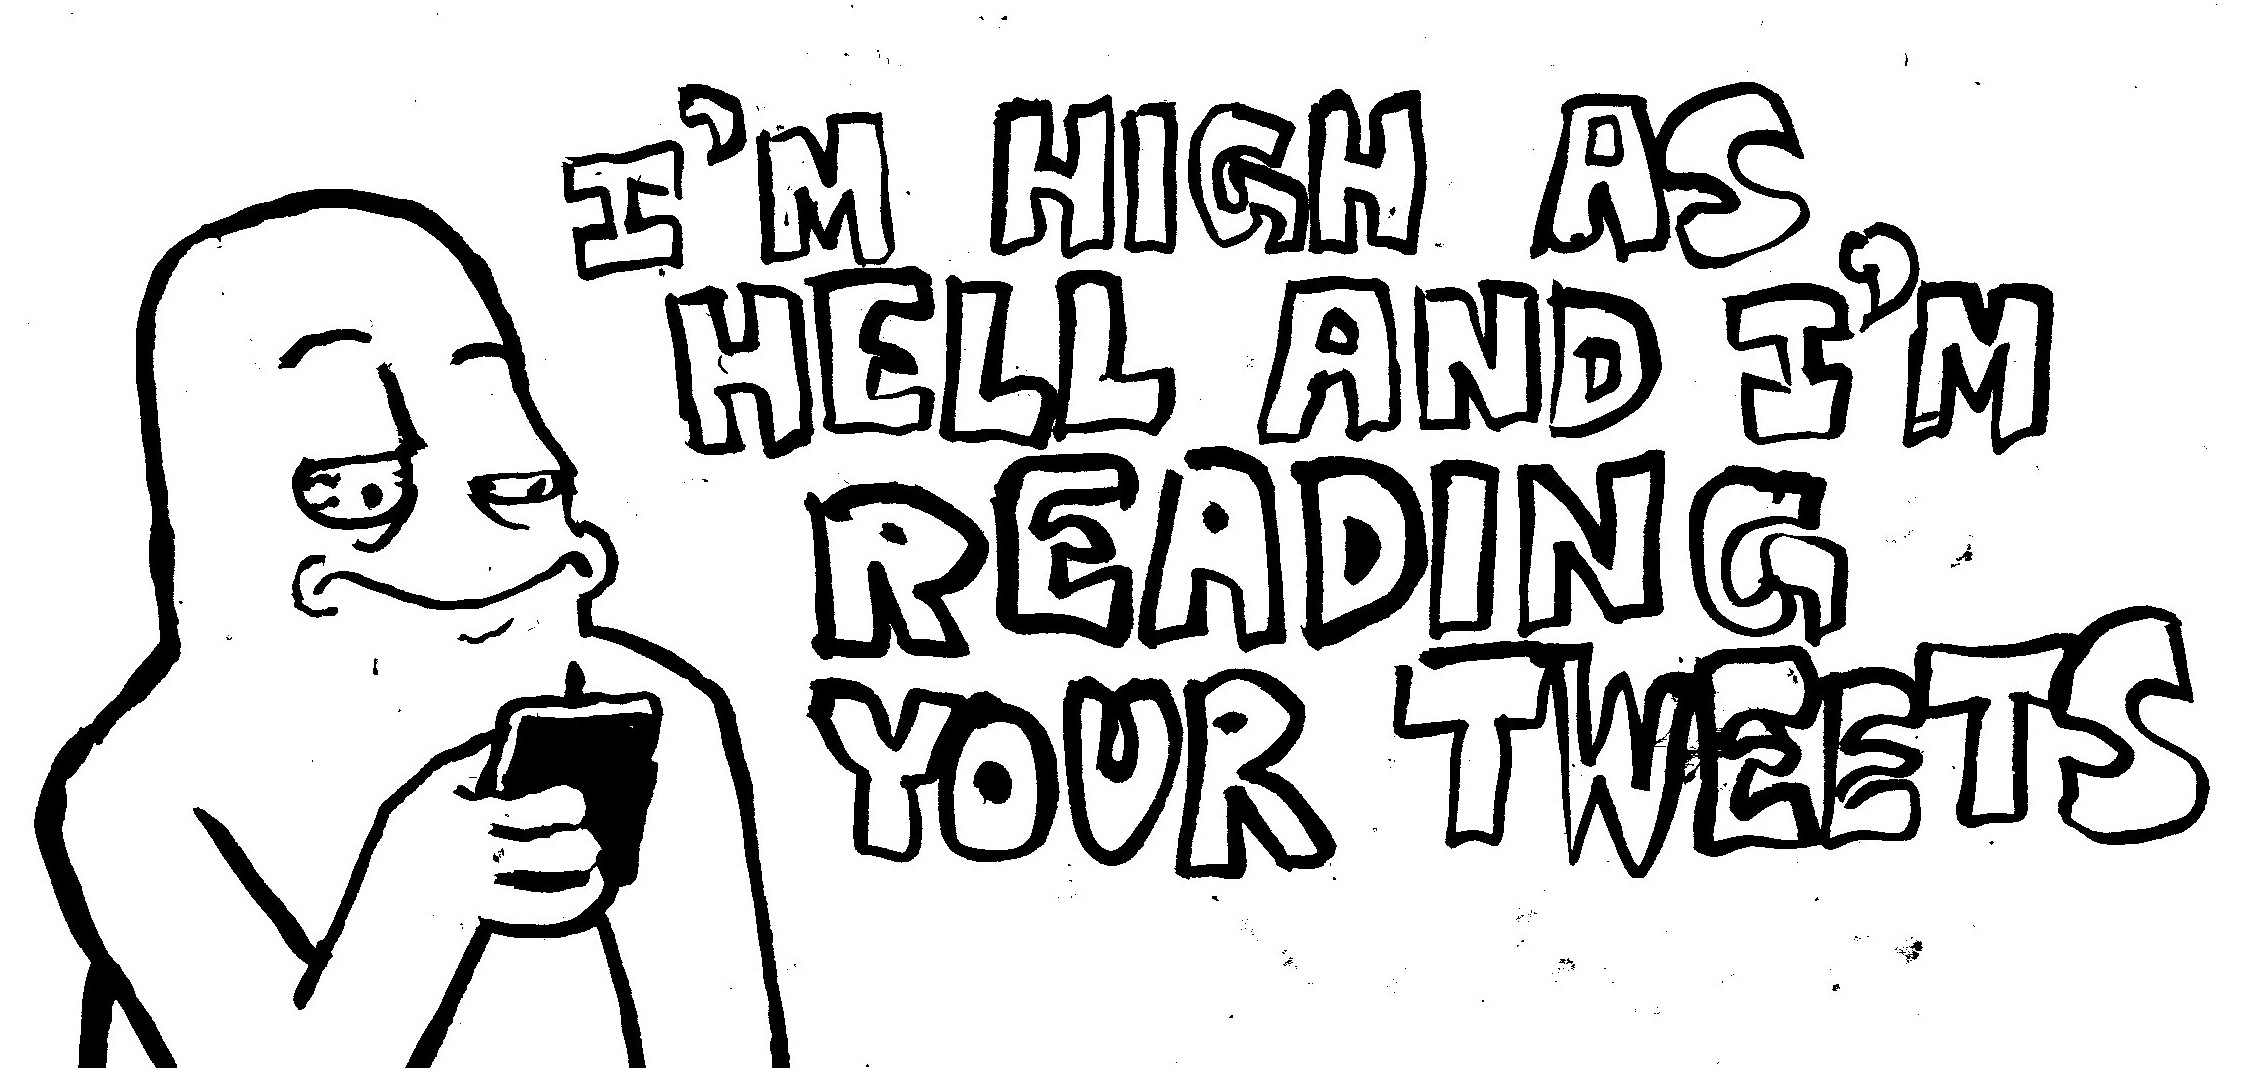 I'M HIGH AS
HELL AND I'M
READING
YOUR TWEETS